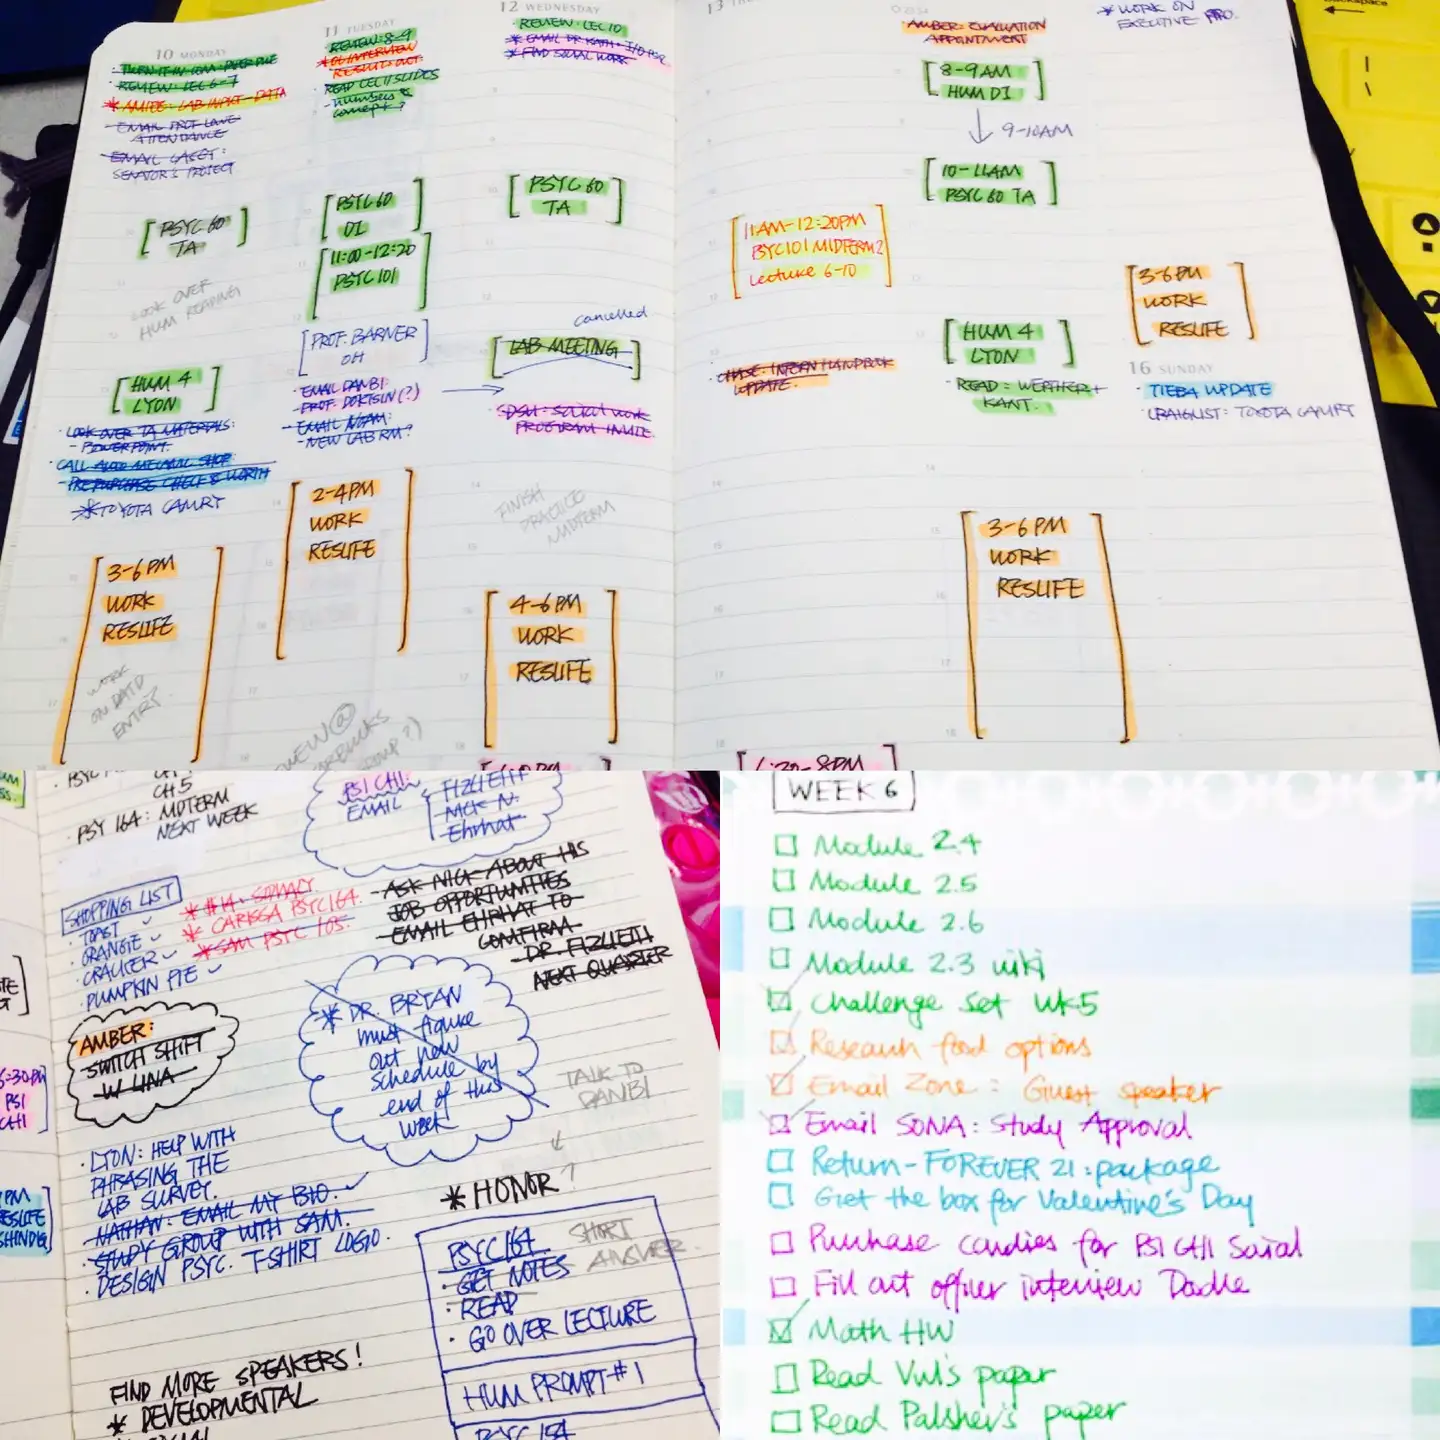 10 MONDAY
· REVIEW: LEC 6-7
* AMIDE: LAB INPUT DATA
· EMAIL PROF LANE
ATTENDANCE
· EMAIL CASEY:
SENATOR'S PROJECT
[PSYC 60
TA]
LOOK OVER
HUM READING
[HUM 4
LYON]
· LOOK OVER TA MATERIALS:
- POWERPOINT.
· CALL AUTO MECHANIC SHOP
- PREPURCHASE CHECK & WORTH
* TOYOTA CAMRY
3-6PM
WORK
RESLIFE
WORK
ON DATA
ENTRY
11 TUESDAY
· REVIEW: 8-9
INTERVIEW
RESULTS OUT
READ LEC 11 SLIDES
- numbers &
concept?
[PSYC 60
DI]
11:00-12:20
PSYC 101
[PROF. BARNER
OH]
· EMAIL DANBI:
- PROF. DOKTSIN(?)
· EMAIL NGAM:
- NEW LAB RM?
2-4PM
WORK
RESLIFE
12 WEDNESDAY
· REVIEW: LEC 10
* FIND SOCIAL WORK
[PSYC 60
TA]
cancelled
[LAB MEETING]
· SDSU: SOCIAL WORK
PROGRAM INVITE
FINISH
PRACTICE
MIDTERM
4-6PM
WORK
RESLIFE
13
11AM-12:20PM
PSYC 101 MIDTERM 2
Lecture 6-10
· CHASE: INTERN HANDBOOK
UPDATE.
6:30-8PM
· AMBER: EVALUATION
APPOINTMENT
[8-9AM
HUM DI]
9-10AM
[10-11AM
PSYC 60 TA]
[HUM 4
LYON]
· READ: WERTHER +
KANT.
3-6PM
WORK
RESLIFE
* WORK ON
EXECUTIVE PRO.
3-6PM
WORK
RESLIFE
16 SUNDAY
· TIEBA UPDATE
· CRAIGLIST: TOYOTA CAMRY
CH 5
· PSY 164: MIDTERM
NEXT WEEK
SHOPPING LIST
· TOAST
· ORANGE
· CRACKER
· PUMPKIN PIE
* CARISSA PSYC 164.
* SAM PSYC 105.
PSI CHI:
EMAIL
FIZLIETH
NICK N.
Ehrhat
- ASK NICK ABOUT HIS
JOB OPPORTUNITIES
- EMAIL EHRHAT TO
COMFIRM
- DR. FIZLIETH
NEXT QUARTER
AMBER:
SWITCH SHIFT
W/ LINA
* DR. BRYAN
must figure
out new
schedule by
end of this
week!
TALK TO
DANBI
· LYON: HELP WITH
PHRASING THE
LAB SURVEY.
· NATHAN: EMAIL MY BIO.
· STUDY GROUP WITH SAM.
· DESIGN PSYC. T-SHIRT LOGO.
* HONOR?
PSYC 164
· GET NOTES
· READ
· GO OVER LECTURE
SHORT
ANSWER
HUM PROMPT #1
PSYC 154
FIND MORE SPEAKERS!
* DEVELOPMENTAL
6:30PM
PSI
CHI
PM
RESLIFE
SHINDIG
WEEK 6
Module 2.4
Module 2.5
Module 2.6
Module 2.3 wiki
Challenge Set WK5
Research food options
Email Zone: Guest speaker
Email SONA: Study Approval
Return - FOREVER 21: package
Get the box for Valentine's Day
Purchase candies for PSI CHI Social
Fill out officer interview Doodle
Math HW
Read Vul's paper
Read Palsher's paper